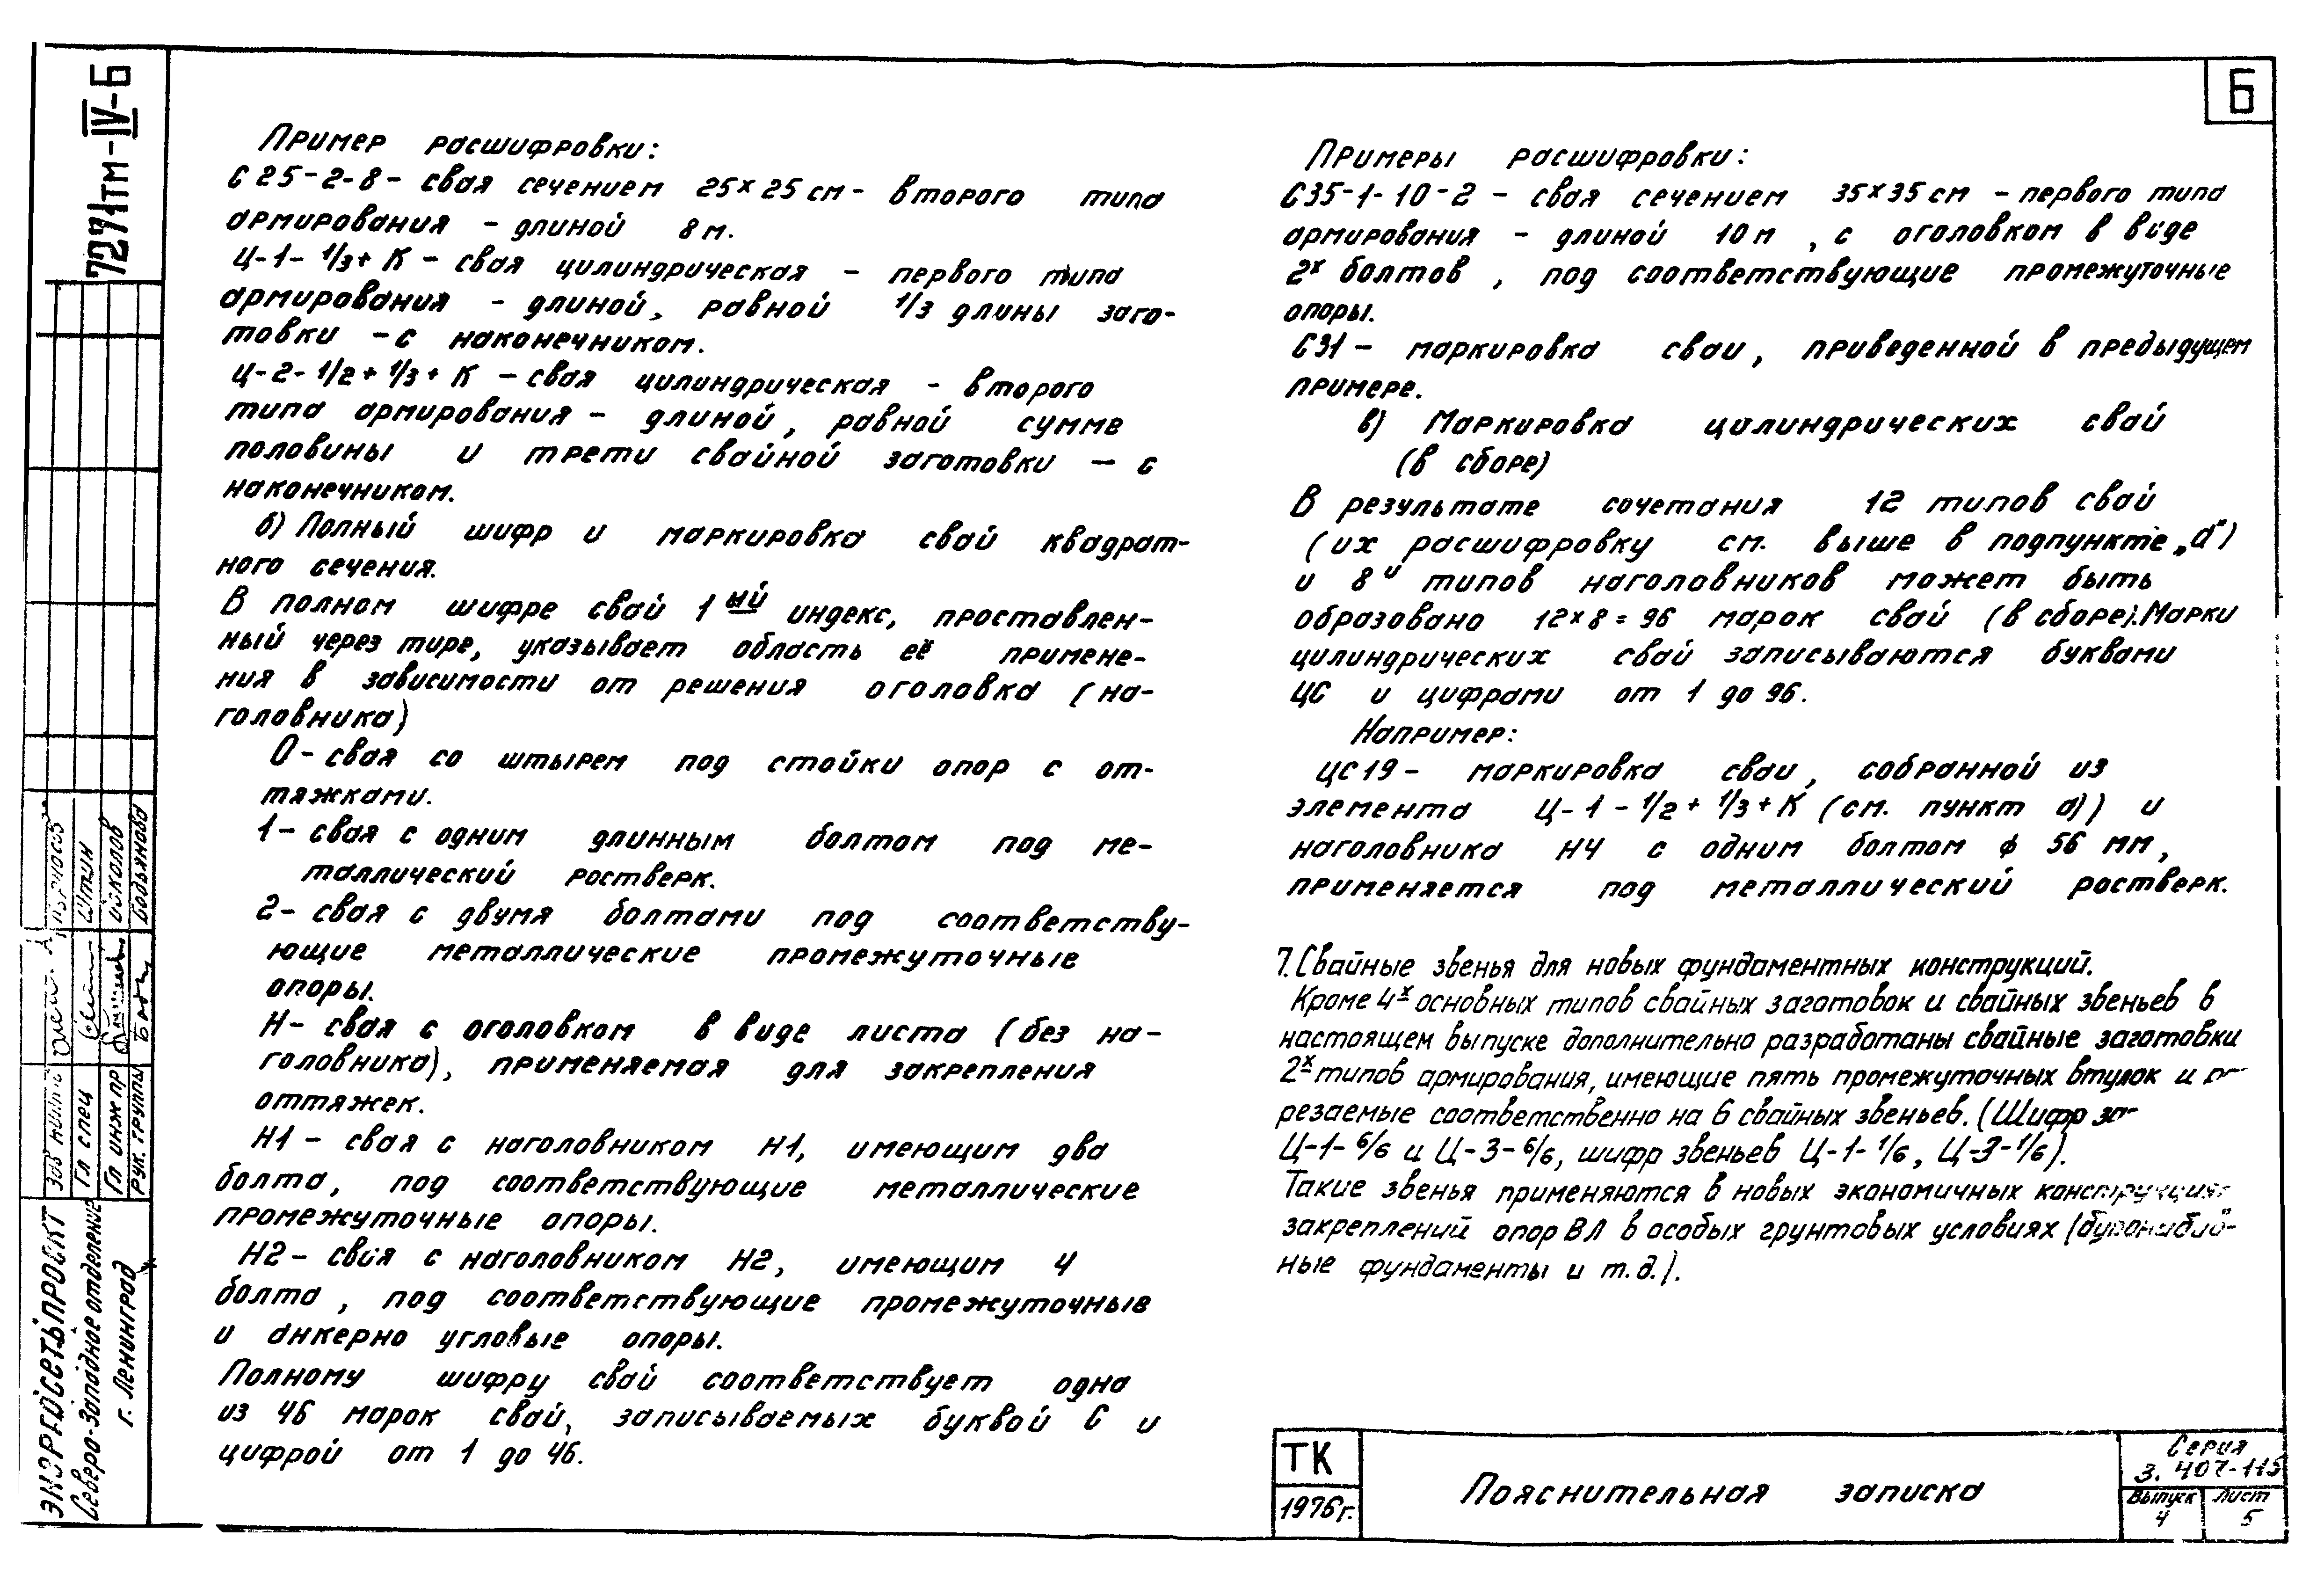 7271тм-IV-Б
Б
Пример расшифровки:
С25-2-8- свая сечением 25×25 см- второго типа
армирования - длиной 8 м.
Ц-1- 1/3+ К - свая цилиндрическая - первого типа
армирования - длиной, равной 1/3 длины заго-
товки - с наконечником.
Ц-2- 1/2+ 1/3+ К - свая цилиндрическая - второго
типа армирования - длиной, равной сумме
половины и трети свайной заготовки - с
наконечником.
б) Полный шифр и маркировка свай квадрат-
ного сечения.
В полном шифре свай 1ый индекс, проставлен-
ный через тире, указывает область её примене-
ния в зависимости от решения оголовка (на-
головника)
0- свая со штырем под стойки опор с от-
тяжками.
1- свая с одним длинным болтом под ме-
таллический ростверк.
2- свая с двумя болтами под соответству-
ющие металлические промежуточные
опоры.
Н- свая с оголовком в виде листа (без на-
головника), применяемая для закрепления
оттяжек.
Н1 - свая с наголовником Н1, имеющим два
болта, под соответствующие металлические
промежуточные опоры.
Н2- свая с наголовником Н2, имеющим 4
болта, под соответствующие промежуточные
и анкерно угловые опоры.
Полному шифру свай соответствует одна
из 46 марок свай, записываемых буквой С и
цифрой от 1 до 46.
Примеры расшифровки:
С35-1-10-2 - свая сечением 35×35 см - первого типа
армирования - длиной 10 м, с оголовком в виде
2х болтов, под соответствующие промежуточные
опоры.
С31 - маркировка сваи, приведенной в предыдущем
примере.
в) Маркировка цилиндрических свай
(в сборе)
В результате сочетания 12 типов свай
(их расшифровку см. выше в подпункте „а")
и 8и типов наголовников может быть
образовано 12×8=96 марок свай (в сборе). Марки
цилиндрических свай записываются буквами
ЦС и цифрами от 1 до 96.
Например:
ЦС19 - маркировка сваи, собранной из
элемента Ц-1-1/2+ 1/3+К (см. пункт а)) и
наголовника Н4 с одним болтом ф 56 мм,
применяется под металлический ростверк.
7. Свайные звенья для новых фундаментных конструкций.
Кроме 4х основных типов свайных заготовок и свайных звеньев в
настоящем выпуске дополнительно разработаны свайные заготовки
2х типов армирования, имеющие пять промежуточных втулок и
резаемые соответственно на 6 свайных звеньев. (Шифр
Ц-1-6/6 и Ц-3-6/6, шифр звеньев Ц-1-1/6, Ц-3-1/6).
Такие звенья применяются в новых экономичных конструкциях
закреплений опор ВЛ в особых грунтовых условиях (буронабив-
ные фундаменты и т.д.).
ЭНЕРГОСЕТЬПРОЕКТ
Северо-Западное отделение
г. Ленинград
Гл спец Штин
Гл инж пр Соколов
Рук. группы
ТК
1976г.
Пояснительная записка
Серия
3.407-115
Выпуск Лист
4 5